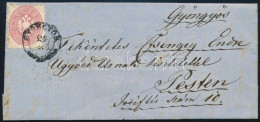 Gyöngyös
GYÖNGYÖS
Tekintetes Csengey Endre
Ügyvéd Urnak tisztelettel
Pesten
József tér Szám 10.